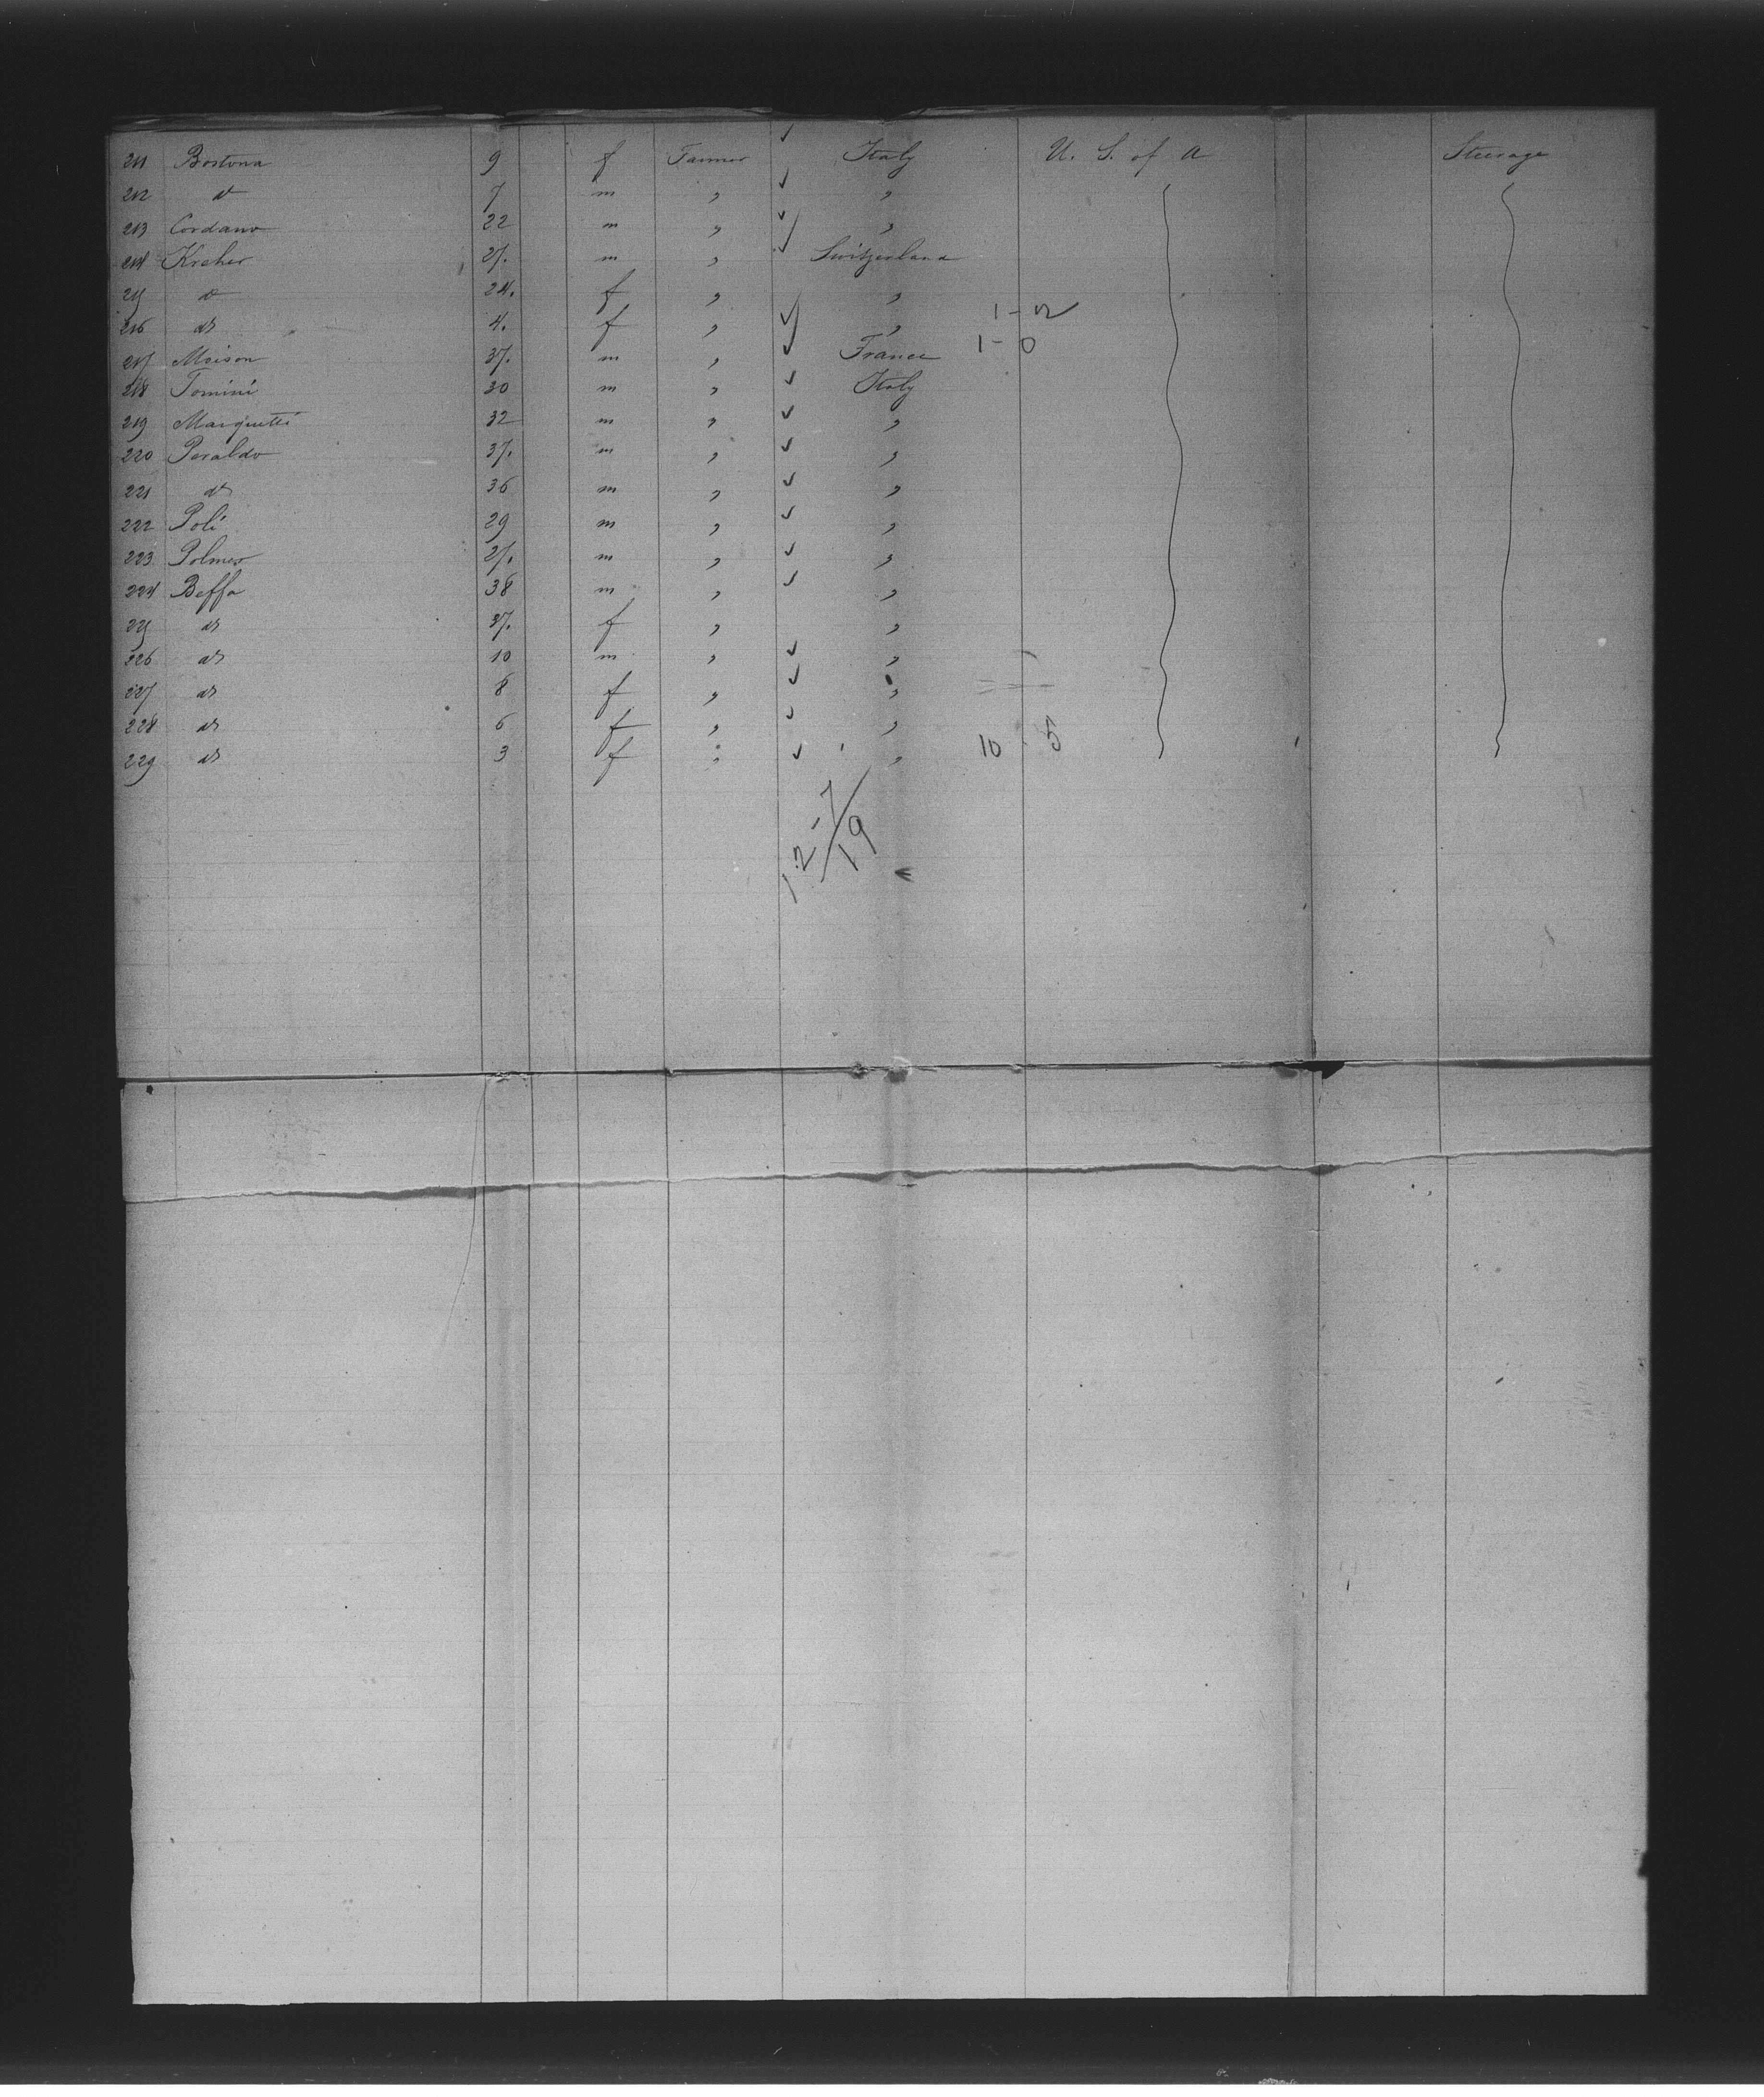 211 Bostona 9 f Farmer Italy U. S. of A Steerage
212 do 7 m " "
213 Cordano 22 m " "
214 Kreher 27. m " Switzerland
215 do 24. f " "
216 do 4. f " " 1-2
217 Moison 37. m " France 1-0
218 Tomini 30 m " Italy
219 Marquetti 32 m " "
220 Peraldo 37. m " "
221 do 36 m " "
222 Poli 29 m " "
223 Polmer 27. m " "
224 Beffa 38 m " "
225 do 37. f " "
226 do 10 m " "
227 do 8 f " "
228 do 6 f " "
229 do 3 f " " 10 5
12-7/19